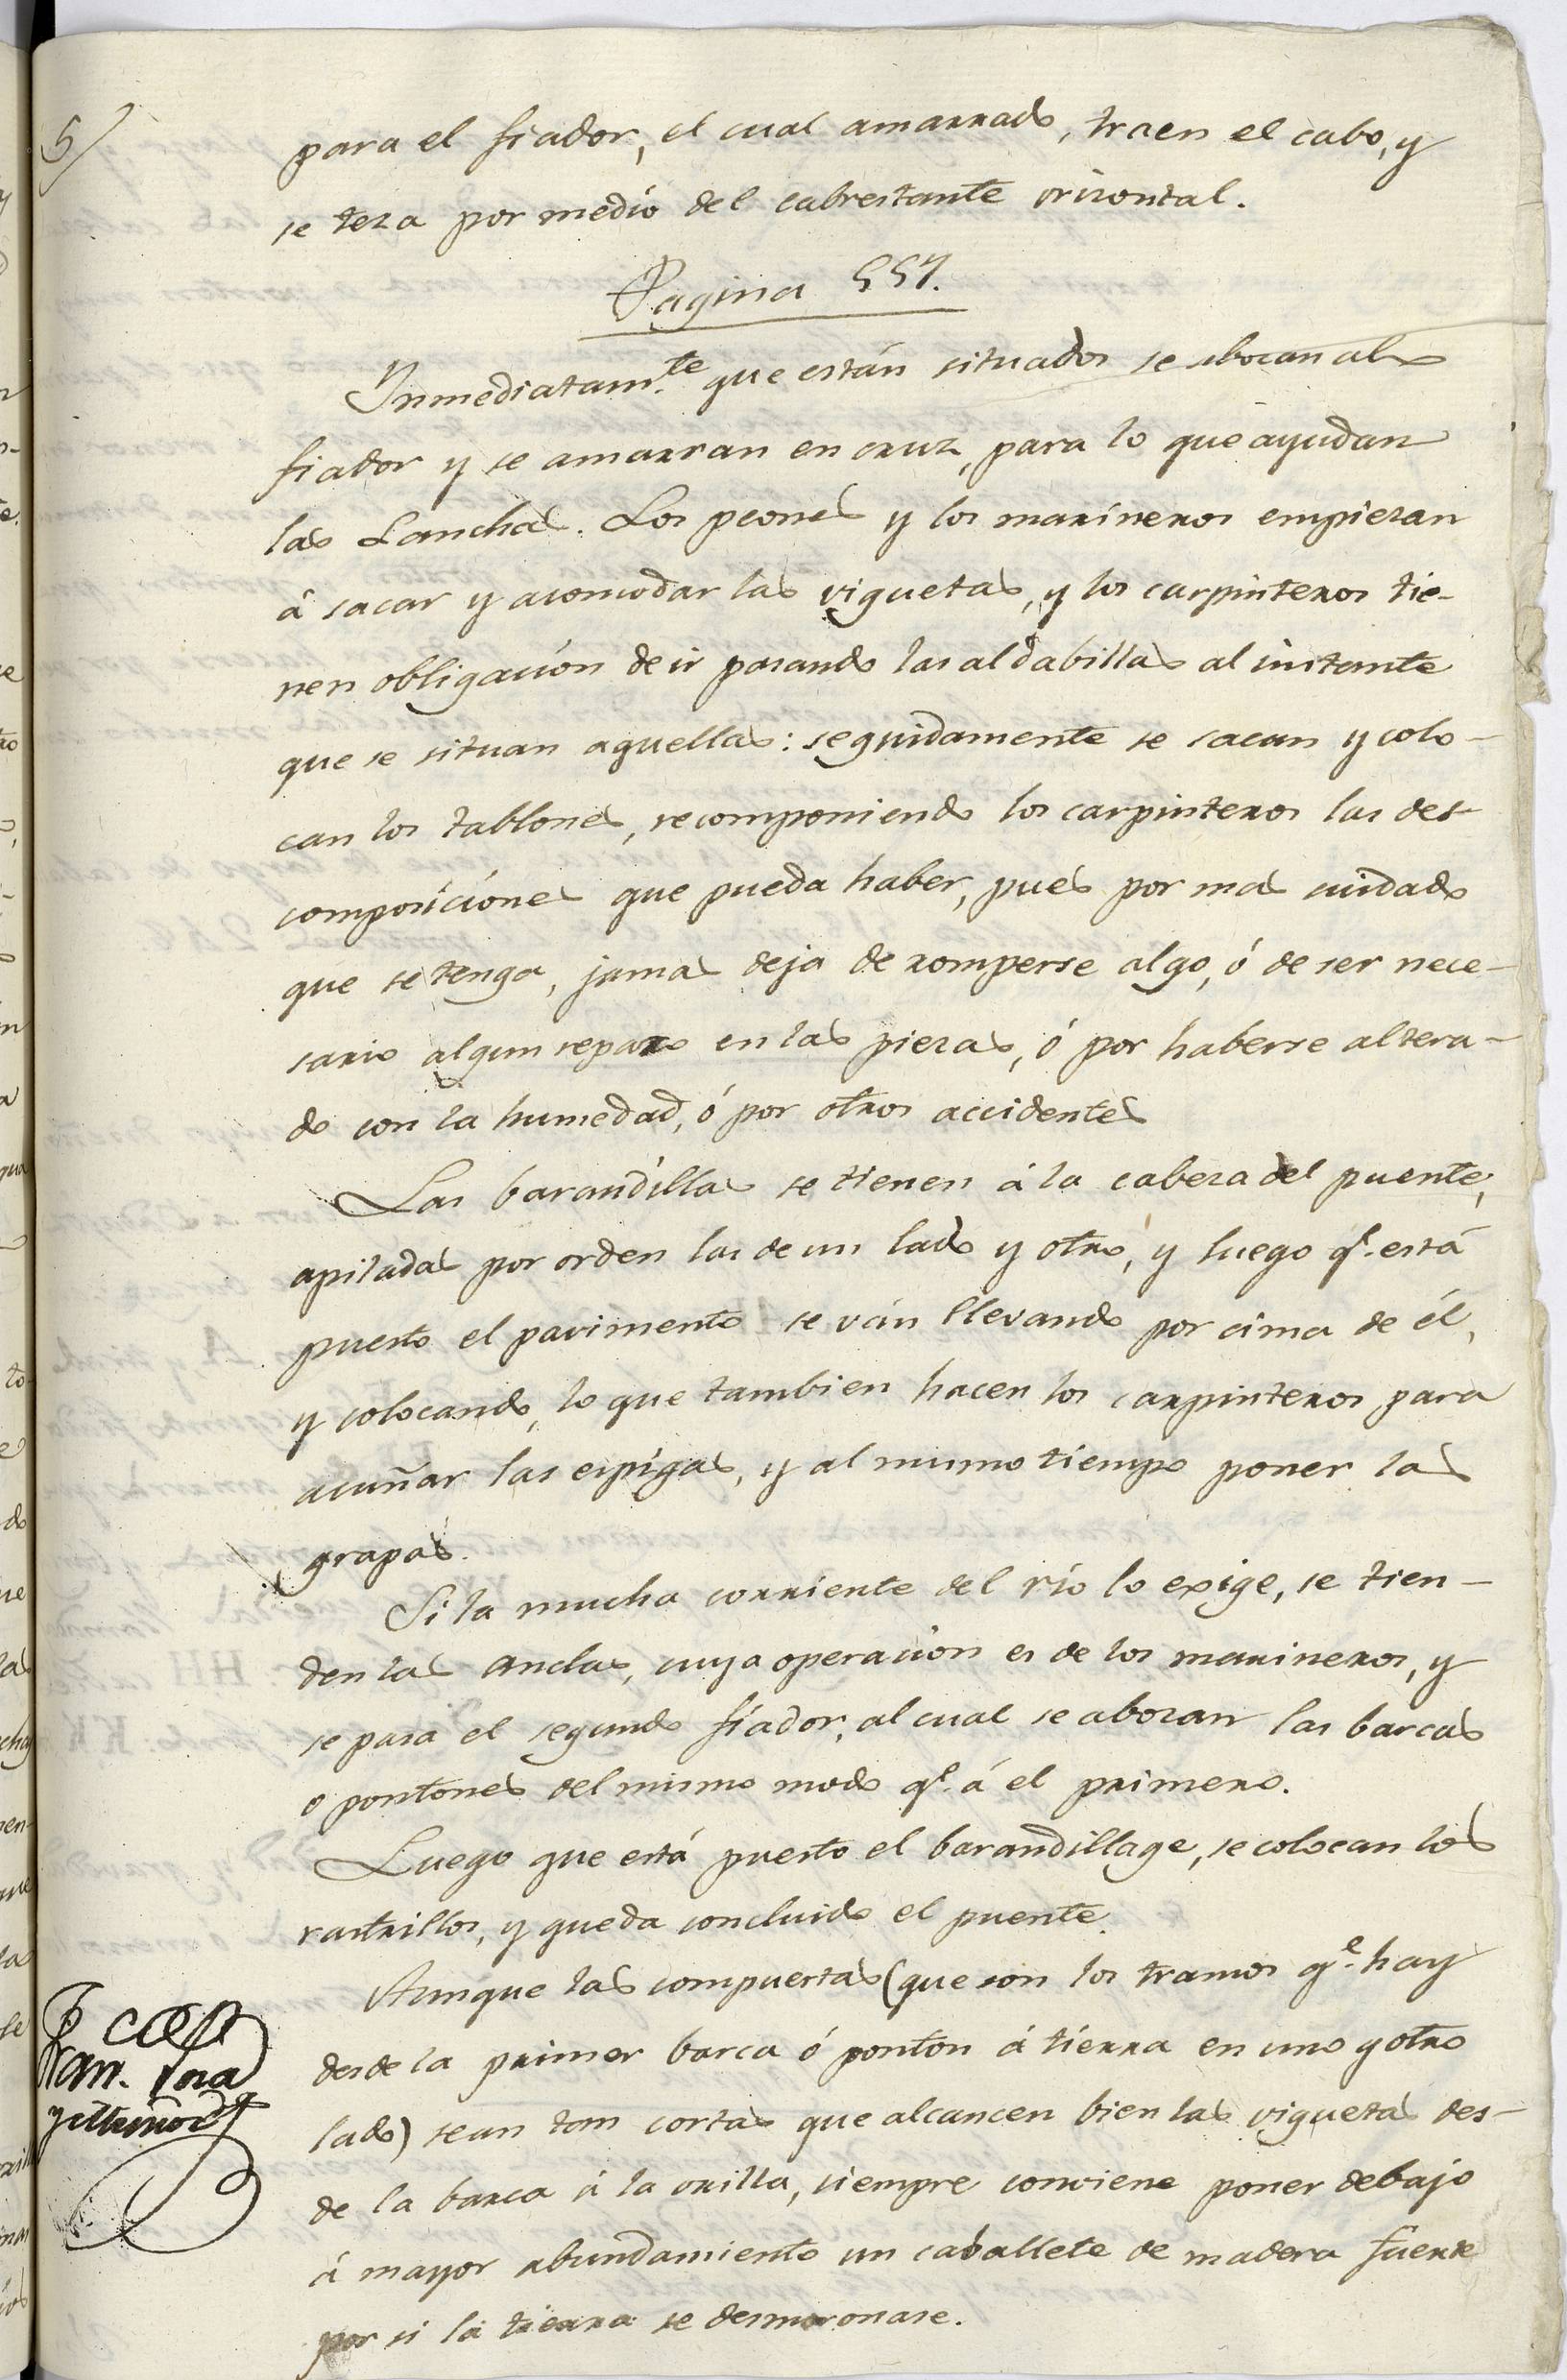 5/
para el fiador, el cual amarrado, traen el cabo, y
se teza por medio del cabrestante orizontal.
Pagina 557.
Inmediatam.te que están situados se abocan al
fiador y se amarran en cruz, para lo que ayudan
las Lanchas. Los peones y los marineros empiezan
á sacar y acomodar las viguetas, y los carpinteros tie-
nen obligacion de ir pasando las aldabillas al instante
que se situan aquellas: seguidamente se sacan y colo-
can los tablones, recomponiendo los carpinteros las des-
composiciones que pueda haber, pues por mas cuidado
que se tenga, jamas deja de romperse algo, ó de ser nece-
sario algun reparo en las piezas, ó por haberse altera-
do con la humedad, ó por otros accidentes
Las barandillas se tienen á la cabeza del puente,
apiladas por orden las de un lado y otro, y luego q.e está
puesto el pavimento se ván llevando por cima de él,
y colocando, lo que tambien hacen los carpinteros para
acuñar las espigas, y al mismo tiempo poner las
grapas.
Si la mucha corriente del río lo exige, se tien-
den las anclas, cuya operacion es de los marineros, y
se pasa el segundo fiador, al cual se abozan las barcas
o pontones del mismo modo q.e á el primero.
Luego que está puesto el barandillage, se colocan los
rastrillos, y queda concluido el puente.
Aunque las compuertas (que son los tramos q.e hay
desde la primer barca ó ponton á tierra en uno y otro
lado) sean tan cortas que alcancen bien las viguetas des-
de la barca á la orilla, siempre conviene poner debajo
á mayor abundamiento un caballete de madera fuerte
por si la tierra se desmoronase.